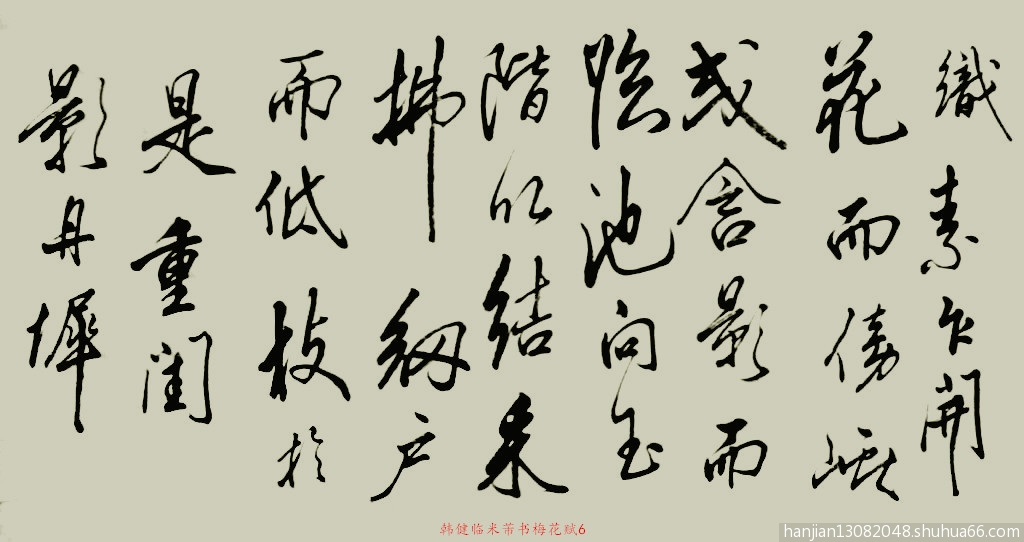 織素乍開
花而傍巘
或含影而
臨池向玉
階以結采
拂網戶
而低枝於
是重閨
影丹墀
韩健临米芾书梅花赋6
hanjian13082048.shuhua66.com